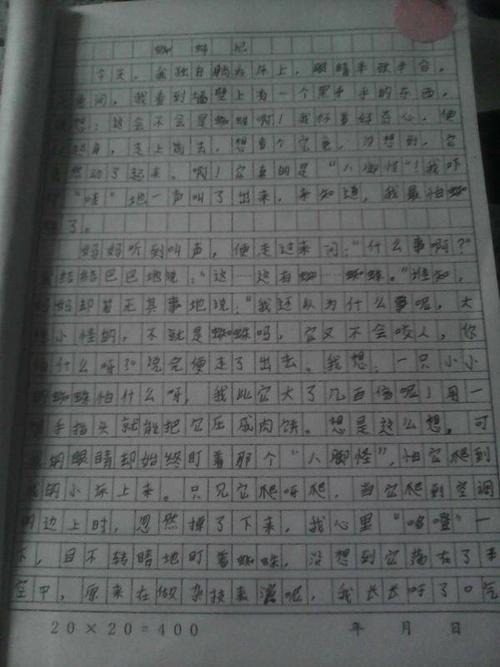 蜘蛛记
今天,我独自躺在床上,眼睛半张半合,
间,我看到墙壁上有一个黑乎乎的东西,
想:这会不会是蜘蛛啊!我怀着好奇心,便
起身,走上前去,想看个究竟,没想到,它
然动了起来。啊!它真的是“八脚怪”!我吓
“哇”地一声叫了出来,未知道,我最怕蜘
蛛了。
妈妈听到叫声,便走过来问:“什么事啊?”
我结结巴巴地说:“这…这有蜘……蜘蛛。”谁知,
妈妈却若无其事地说:“我还以为什么事呢,大
小怪的,不就是蜘蛛吗,它又不会咬人,你
怕什么呀?”说完便走了出去。我想:一只小小
的蜘蛛怕什么呀,我比它大了几百倍呢!用一
手指头就能把它压成肉饼。想是这么想,可
我的眼睛却始终盯着那个“八脚怪”,怕它爬到
我的小床上来。只见它爬呀爬,当它爬到空调
的边上时,忽然掉了下来,我心里“咯噔”一
下,目不转睛地盯着蜘蛛,没想到它荡在了半
空中,原来在做杂技表演呢,我长长呼了口气
20×20=400 年 月 日